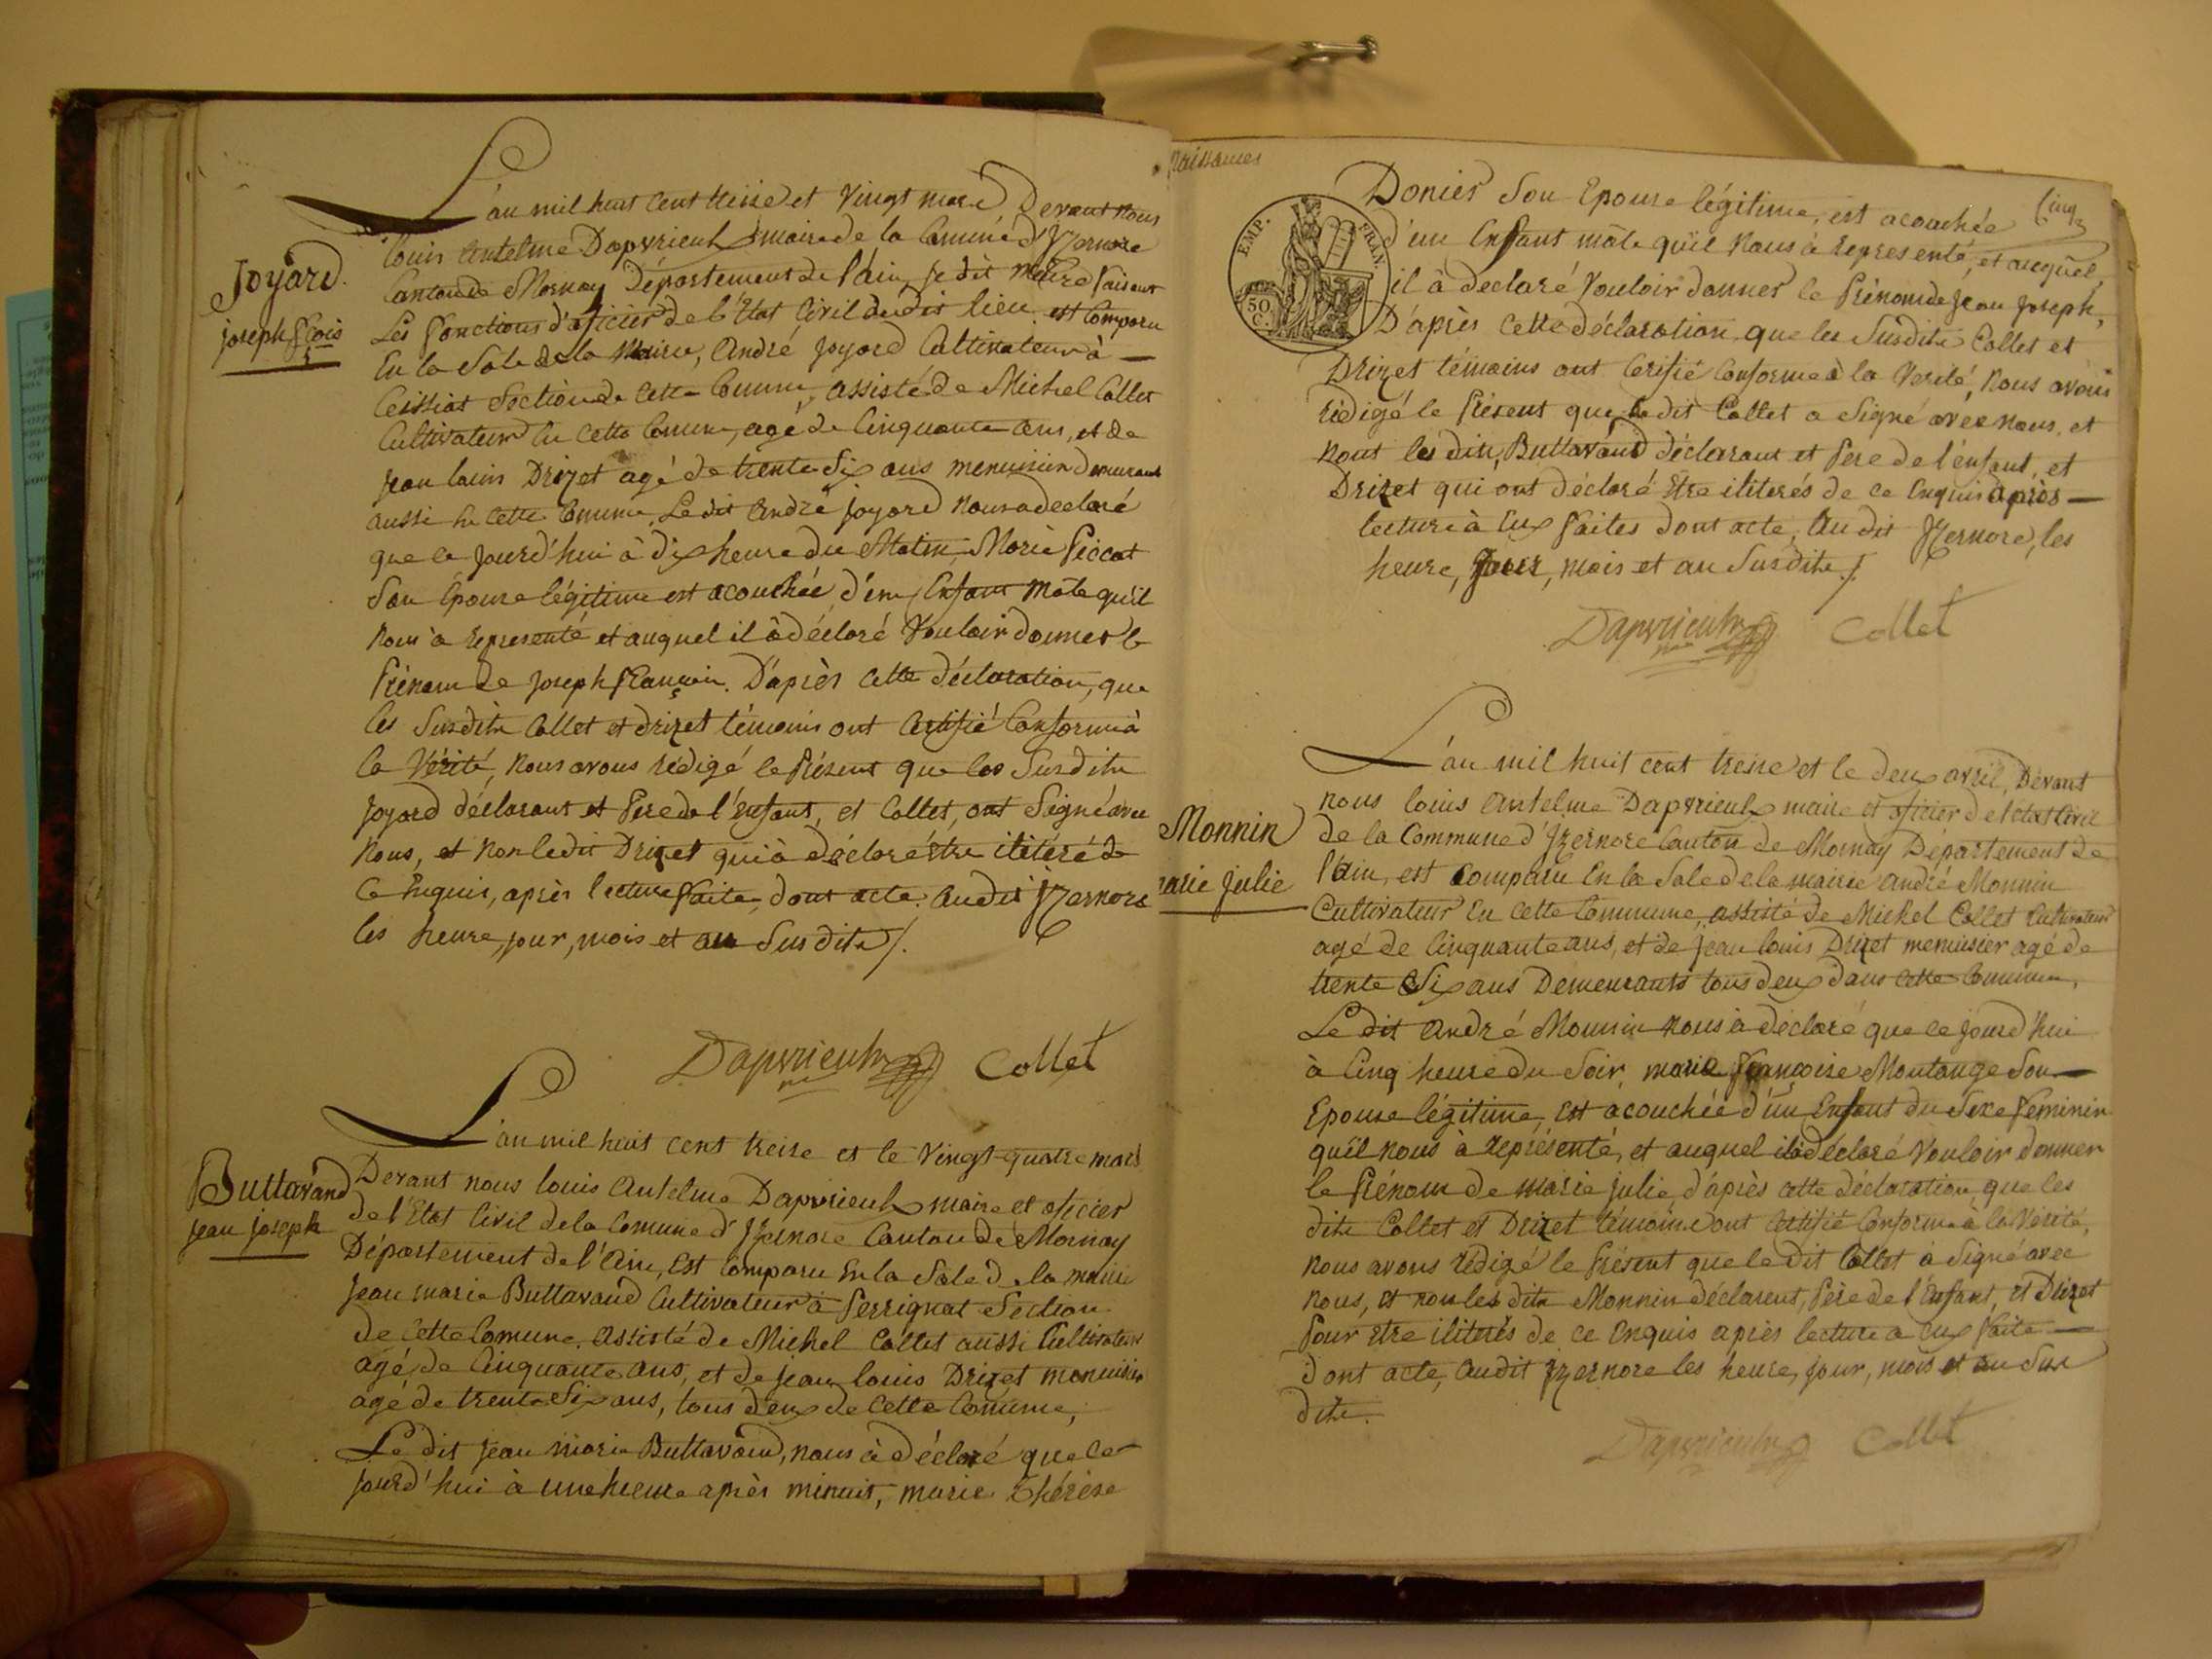 L'an mil huit cent treise et vingt mars Devant nous
louis antelme Dapvrieulx maire de la Comune d'Izernore
Canton de Mornay Département de l'ain, je dit maire faisant
Les fonctions d'oficier de l'Etat Civil dudit lieu est Comparu
En la Sale de la Mairie, André Joyard Cultivateur à —
Ceissiat Section de Cette Comune, assisté de Michel Collet
Cultivateur En Cette Comune, agé de Cinquante ans, et de
Jean louis Drizet agé de trente Six ans menuisier demurant
aussi En Cette Comune. Le dit André Joyard nous a declaré
que ce jourd'hui à dix heure du Matin, Marie Piccot
Son Epouse légitime est acouchée d'un Enfant mâle qu'il
nous à representé et auquel il à décloré Vouloir donner le
Prénom de Joseph François. D'après Cette déclaration, que
les Susdits Collet et drizet témoins ont Certifié Conforme à
la Vérité, nous avons rédigé le Présent que les Susdits
Joyard déclarant et Pere de l'enfant, et Collet, ont Signé avec
nous, et non ledit Drizet qui à décloré être iliteré de
Ce Enquis, après lecture faite, dont acte. audit izernore
les heure, jour, mois et an Susdits /.
Dapvrieulx Collet
Joyard.
joseph fçois
L'an mil huit cent treise et le Vingt-quatre mars
Devant nous louis Antelme Dapvrieulx maire et oficier
de l'Etat Civil de la Comune d'Izernore Canton de Mornay
Département de l'Ain, Est Comparu En la Sale de la mairie
Jean marie Buttavand Cultivateur à Perrignat Section
de Cette Comune. Assisté de Michel Collet aussi Cultivateur
agé de Cinquante ans, et de jean louis Drizet menuisier
agé de trente Six ans, tous deux de Cette Comune,
Le dit Jean Marie Buttavand, nous à décloré que Ce
Jourd'hui à une heure après minuit, marie Thérèse
Buttavand
Jean joseph
naissances
Cinq
EMP. FRAN.
50
C.
Donier Son Epouse légitime, est acouchée
d'un Enfant mâle qu'il nous à representé, et auquel,
il à declaré Vouloir donner le Prénom de Jean Joseph,
D'après Cette déclaration que les Susdits Collet et
Drizet témoins ont Cerifié Conforme à la Verité, nous avons
rédigé le Présent que le dit Collet a Signé avec nous, et
nont les dits, Buttavand déclarant et Pere de l'enfant, et
Drizet qui ont décloré être iliterés de ce Enquis après —
lecture à Eux faites dont acte, Au dit Izernore, les
heure, Jour, mois et an Susdits /.
Dapvrieulx Collet
L'an mil huit cent treise et le deux avril, Devant
nous louis Antelme Dapvrieulx maire et oficier de l'etat Civil
de la Commune d'Izernore Canton de Mornay Département de
l'Ain, est Comparu En la Sale de la mairie André Monnin
Cultivateur En Cette Commune, assisté de Michel Collet Cultivateur
agé de Cinquante ans, et de Jean louis Drizet menuisier agé de
trente Six ans Demeurants tous deux dans cette Comune,
Le dit André Monnin nous à décloré que ce jourd'hui
à Cinq heure du Soir, marie françoise Montange Son —
Epouse légitime, est acouchée d'un Enfant du Sexe féminin
qu'il nous à représenté, et auquel il à décloré Vouloir donner
le Prénom de marie Julie, d'après cette déclaration, que les
dits Collet et Drizet témoins ont Certifié Conforme à la Vérité,
nous avons rédigé le Présent que le dit Collet à Signé avec
nous, et non les dits Monnin déclarent, Père de l'Enfant, et Drizet
Pour etre iliterés de ce Enquis après lecture a Eux faite —
dont acte, Audit Izernore les heure, jour, mois et an Sus
dits.
Dapvrieulx Collet
Monnin
marie Julie